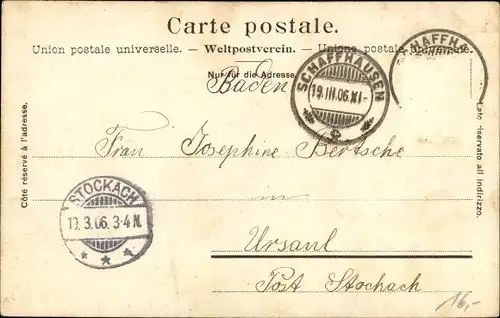 Carte postale.
Union postale universelle. – Weltpostverein. – Unione postale universale.
Nur für die Adresse.
Baden
SCHAFFHAUSEN
19.III.06.XI-
SCHAFFH
Côté réservé à l'adresse.
Lato riservato all indirizzo.
Frau Josephine Bertsche
in
STOCKACH
3.06. 3-4 N.
Ursaul
Post Stockach
16,-